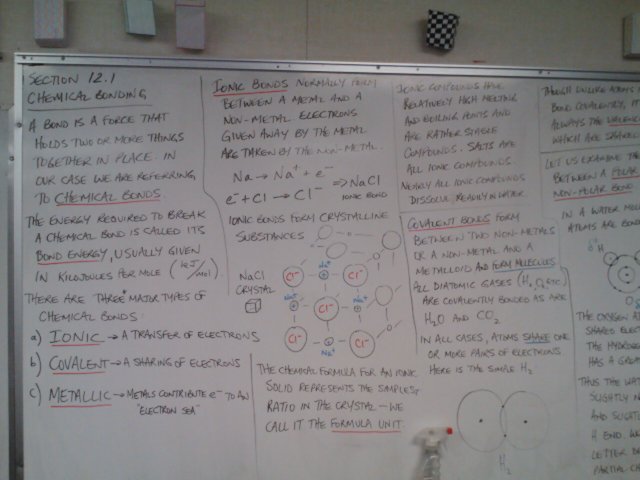 SECTION 12.1
CHEMICAL BONDING
A BOND IS A FORCE THAT
HOLDS TWO OR MORE THINGS
TOGETHER IN PLACE. IN
OUR CASE WE ARE REFERRING
TO CHEMICAL BONDS.
THE ENERGY REQUIRED TO BREAK
A CHEMICAL BOND IS CALLED ITS
BOND ENERGY, USUALLY GIVEN
IN KILOJOULES PER MOLE (kJ/mol)
THERE ARE THREE MAJOR TYPES OF
CHEMICAL BONDS:
a) IONIC → A TRANSFER OF ELECTRONS
b) COVALENT → A SHARING OF ELECTRONS
c) METALLIC → METALS CONTRIBUTE e⁻ TO AN
"ELECTRON SEA"
IONIC BONDS NORMALLY FORM
BETWEEN A METAL AND A
NON-METAL. ELECTRONS
GIVEN AWAY BY THE METAL
ARE TAKEN BY THE NON-METAL.
Na → Na⁺ + e⁻
e⁻ + Cl → Cl⁻ ⇒ NaCl
IONIC BOND
IONIC BONDS FORM CRYSTALLINE
SUBSTANCES
NaCl
CRYSTAL
Cl⁻ Na⁺ Cl⁻
Na⁺ Cl⁻ Na⁺
Cl⁻ Na⁺ Cl⁻
THE CHEMICAL FORMULA FOR AN IONIC
SOLID REPRESENTS THE SIMPLEST
RATIO IN THE CRYSTAL - WE
CALL IT THE FORMULA UNIT.
IONIC COMPOUNDS HAVE
RELATIVELY HIGH MELTING
AND BOILING POINTS AND
ARE RATHER STABLE
COMPOUNDS. SALTS ARE
ALL IONIC COMPOUNDS.
NEARLY ALL IONIC COMPOUNDS
DISSOLVE READILY IN WATER
COVALENT BONDS FORM
BETWEEN TWO NON-METALS
OR A NON-METAL AND A
METALLOID AND FORM MOLECULES
ALL DIATOMIC GASES (H₂, O₂, ETC)
ARE COVALENTLY BONDED AS ARE
H₂O AND CO₂
IN ALL CASES, ATOMS SHARE ONE
OR MORE PAIRS OF ELECTRONS.
HERE IS THE SIMPLE H₂
H₂
THOUGH UNLIKE ATOMS
BOND COVALENTLY,
ALWAYS THE VALENCE
WHICH ARE SHARED
LET US EXAMINE THE
BETWEEN A POLAR
NON-POLAR BOND
IN A WATER MOL
ATOMS ARE BOND
δ⁺ H
THE OXYGEN AT
SHARED ELECT
THE HYDROG
HAS A GREA
THUS THE WAT
SLIGHTLY N
AND SLIGHTL
H END. W
LETTER D
PARTIAL CH